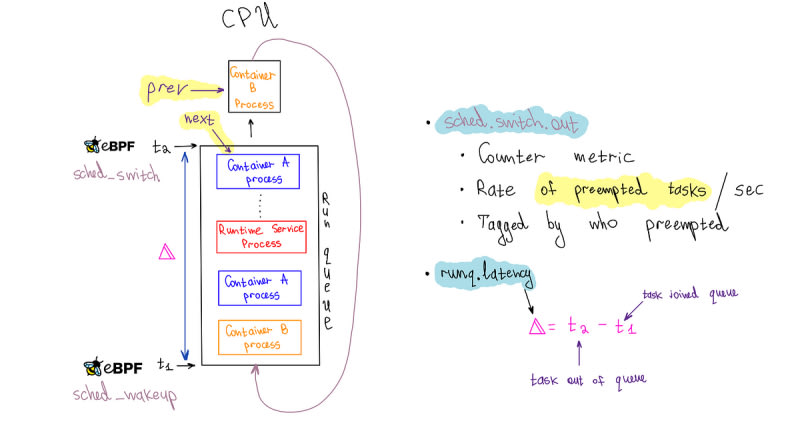 CPU
prev
Container
B
Process
next
eBPF t2
sched_switch
Container A
process
Runtime Service
Process
Container A
process
Container B
process
Run queue
Δ
eBPF t1
sched_wakeup
• sched.switch.out
• Counter metric
• Rate of preempted tasks / sec
• Tagged by who preempted
• runq.latency
task joined queue
Δ = t2 - t1
task out of queue